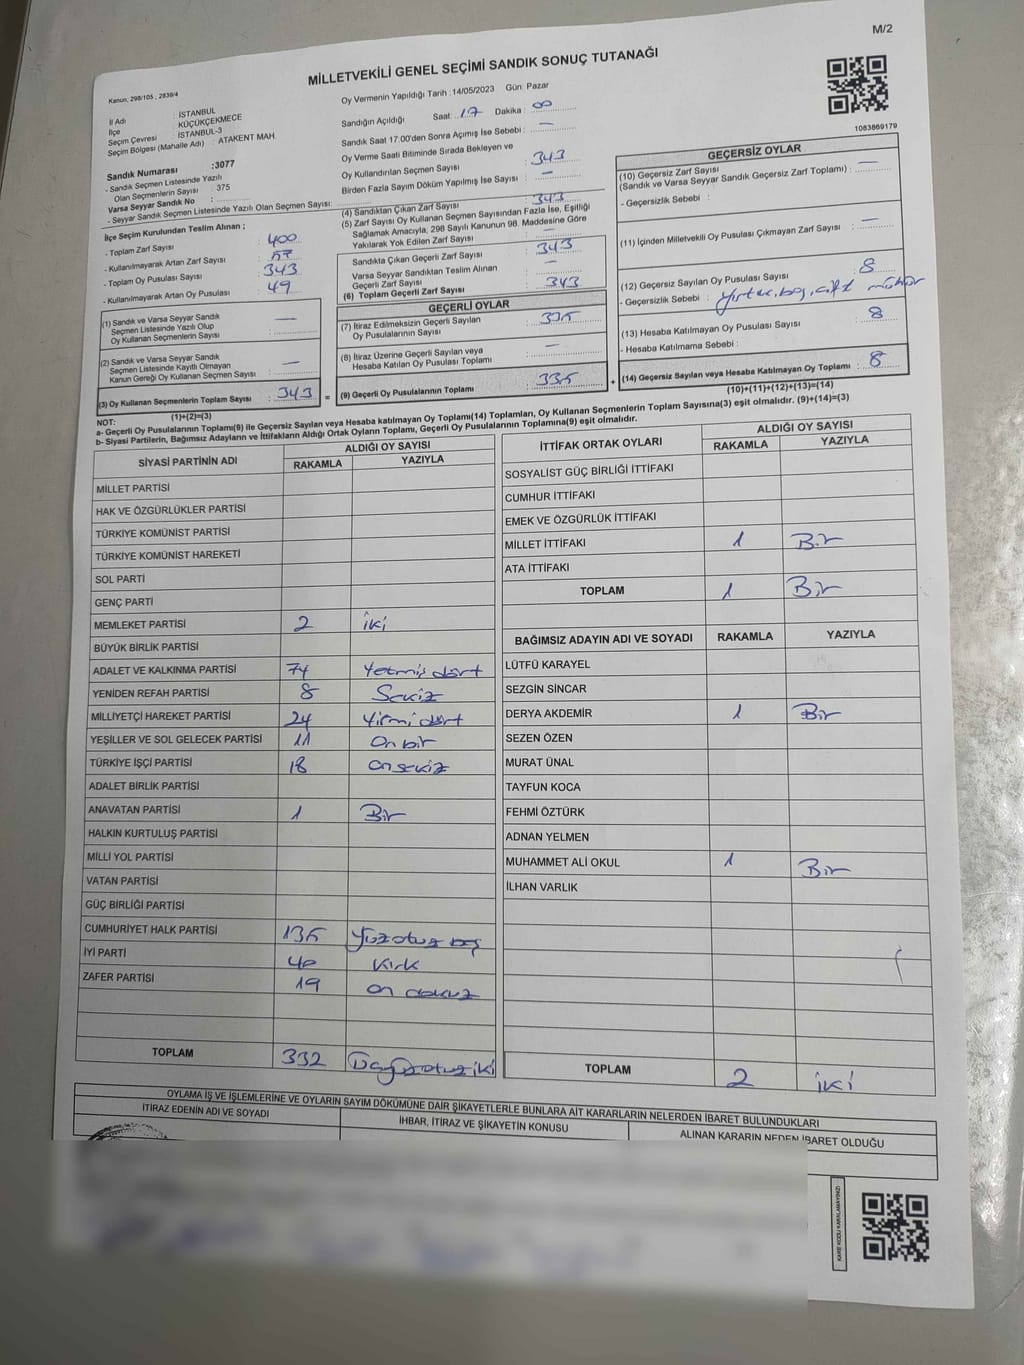 M/2
MİLLETVEKİLİ GENEL SEÇİMİ SANDIK SONUÇ TUTANAĞI
Kanun: 298/105 , 2839/4
İl Adı : İSTANBUL
İlçe : KÜÇÜKÇEKMECE
Seçim Çevresi : İSTANBUL-3
Seçim Bölgesi (Mahalle Adı) : ATAKENT MAH.
Sandık Numarası :3077
- Sandık Seçmen Listesinde Yazılı
Olan Seçmenlerin Sayısı : 375
Varsa Seyyar Sandık No :
- Seyyar Sandık Seçmen Listesinde Yazılı Olan Seçmen Sayısı:
Oy Vermenin Yapıldığı Tarih :14/05/2023 Gün: Pazar
Sandığın Açıldığı Saat: 17 Dakika : 00
Sandık Saat 17.00'den Sonra Açımış İse Sebebi : —
Oy Verme Saati Bitiminde Sırada Bekleyen ve
Oy Kullandırılan Seçmen Sayısı : 343
Birden Fazla Sayım Döküm Yapılmış İse Sayısı : —
1083869179
İlçe Seçim Kurulundan Teslim Alınan ;
- Toplam Zarf Sayısı : 400
- Kullanılmayarak Artan Zarf Sayısı :
- Toplam Oy Pusulası Sayısı : 343
- Kullanılmayarak Artan Oy Pusulası : 49
(1) Sandık ve Varsa Seyyar Sandık
Seçmen Listesinde Yazılı Olup
Oy Kullanan Seçmenlerin Sayısı : —
(2) Sandık ve Varsa Seyyar Sandık
Seçmen Listesinde Kayıtlı Olmayan
Kanun Gereği Oy Kullanan Seçmen Sayısı : —
(3) Oy Kullanan Seçmenlerin Toplam Sayısı : 343
(1)+(2)=(3)
(4) Sandıktan Çıkan Zarf Sayısı : 343
(5) Zarf Sayısı Oy Kullanan Seçmen Sayısından Fazla İse, Eşitliği
Sağlamak Amacıyla, 298 Sayılı Kanunun 98. Maddesine Göre
Yakılarak Yok Edilen Zarf Sayısı : —
Sandıkta Çıkan Geçerli Zarf Sayısı : 343
Varsa Seyyar Sandıktan Teslim Alınan
Geçerli Zarf Sayısı : —
(6) Toplam Geçerli Zarf Sayısı : 343
GEÇERLİ OYLAR
(7) İtiraz Edilmeksizin Geçerli Sayılan
Oy Pusulalarının Sayısı : 335
(8) İtiraz Üzerine Geçerli Sayılan veya
Hesaba Katılan Oy Pusulası Toplamı : —
(9) Geçerli Oy Pusulalarının Toplamı : 335
GEÇERSİZ OYLAR
(10) Geçersiz Zarf Sayısı
(Sandık ve Varsa Seyyar Sandık Geçersiz Zarf Toplamı) : —
- Geçersizlik Sebebi :
(11) İçinden Milletvekili Oy Pusulası Çıkmayan Zarf Sayısı : —
(12) Geçersiz Sayılan Oy Pusulası Sayısı : 8
- Geçersizlik Sebebi :
(13) Hesaba Katılmayan Oy Pusulası Sayısı : 8
- Hesaba Katılmama Sebebi :
(14) Geçersiz Sayılan veya Hesaba Katılmayan Oy Toplamı : 8
(10)+(11)+(12)+(13)=(14)
NOT:
a- Geçerli Oy Pusulalarının Toplamı(9) ile Geçersiz Sayılan veya Hesaba katılmayan Oy Toplamı(14) Toplamları, Oy Kullanan Seçmenlerin Toplam Sayısına(3) eşit olmalıdır. (9)+(14)=(3)
b- Siyasi Partilerin, Bağımsız Adayların ve İttifakların Aldığı Ortak Oyların Toplamı, Geçerli Oy Pusulalarının Toplamına(9) eşit olmalıdır.
SİYASİ PARTİNİN ADI ALDIĞI OY SAYISI
RAKAMLA YAZIYLA
MİLLET PARTİSİ
HAK VE ÖZGÜRLÜKLER PARTİSİ
TÜRKİYE KOMÜNİST PARTİSİ
TÜRKİYE KOMÜNİST HAREKETİ
SOL PARTİ
GENÇ PARTİ
MEMLEKET PARTİSİ 2 iki
BÜYÜK BİRLİK PARTİSİ
ADALET VE KALKINMA PARTİSİ 74 Yetmiş dört
YENİDEN REFAH PARTİSİ 8 Sekiz
MİLLİYETÇİ HAREKET PARTİSİ 24 Yirmi dört
YEŞİLLER VE SOL GELECEK PARTİSİ 11 On bir
TÜRKİYE İŞÇİ PARTİSİ 18 On sekiz
ADALET BİRLİK PARTİSİ
ANAVATAN PARTİSİ 1 Bir
HALKIN KURTULUŞ PARTİSİ
MİLLİ YOL PARTİSİ
VATAN PARTİSİ
GÜÇ BİRLİĞİ PARTİSİ
CUMHURİYET HALK PARTİSİ 135 Yüz otuz beş
İYİ PARTİ 40 Kırk
ZAFER PARTİSİ 19 on dokuz
TOPLAM 332
İTTİFAK ORTAK OYLARI ALDIĞI OY SAYISI
RAKAMLA YAZIYLA
SOSYALİST GÜÇ BİRLİĞİ İTTİFAKI
CUMHUR İTTİFAKI
EMEK VE ÖZGÜRLÜK İTTİFAKI
MİLLET İTTİFAKI 1 Bir
ATA İTTİFAKI
TOPLAM 1 Bir
BAĞIMSIZ ADAYIN ADI VE SOYADI RAKAMLA YAZIYLA
LÜTFÜ KARAYEL
SEZGİN SİNCAR
DERYA AKDEMİR 1 Bir
SEZEN ÖZEN
MURAT ÜNAL
TAYFUN KOCA
FEHMİ ÖZTÜRK
ADNAN YELMEN
MUHAMMET ALİ OKUL 1 Bir
İLHAN VARLIK
TOPLAM 2 iki
OYLAMA İŞ VE İŞLEMLERİNE VE OYLARIN SAYIM DÖKÜMÜNE DAİR ŞİKAYETLERLE BUNLARA AİT KARARLARIN NELERDEN İBARET BULUNDUKLARI
İTİRAZ EDENİN ADI VE SOYADI İHBAR, İTİRAZ VE ŞİKAYETİN KONUSU ALINAN KARARIN NEDEN İBARET OLDUĞU
KARE KODU KARALAMAYINIZ!